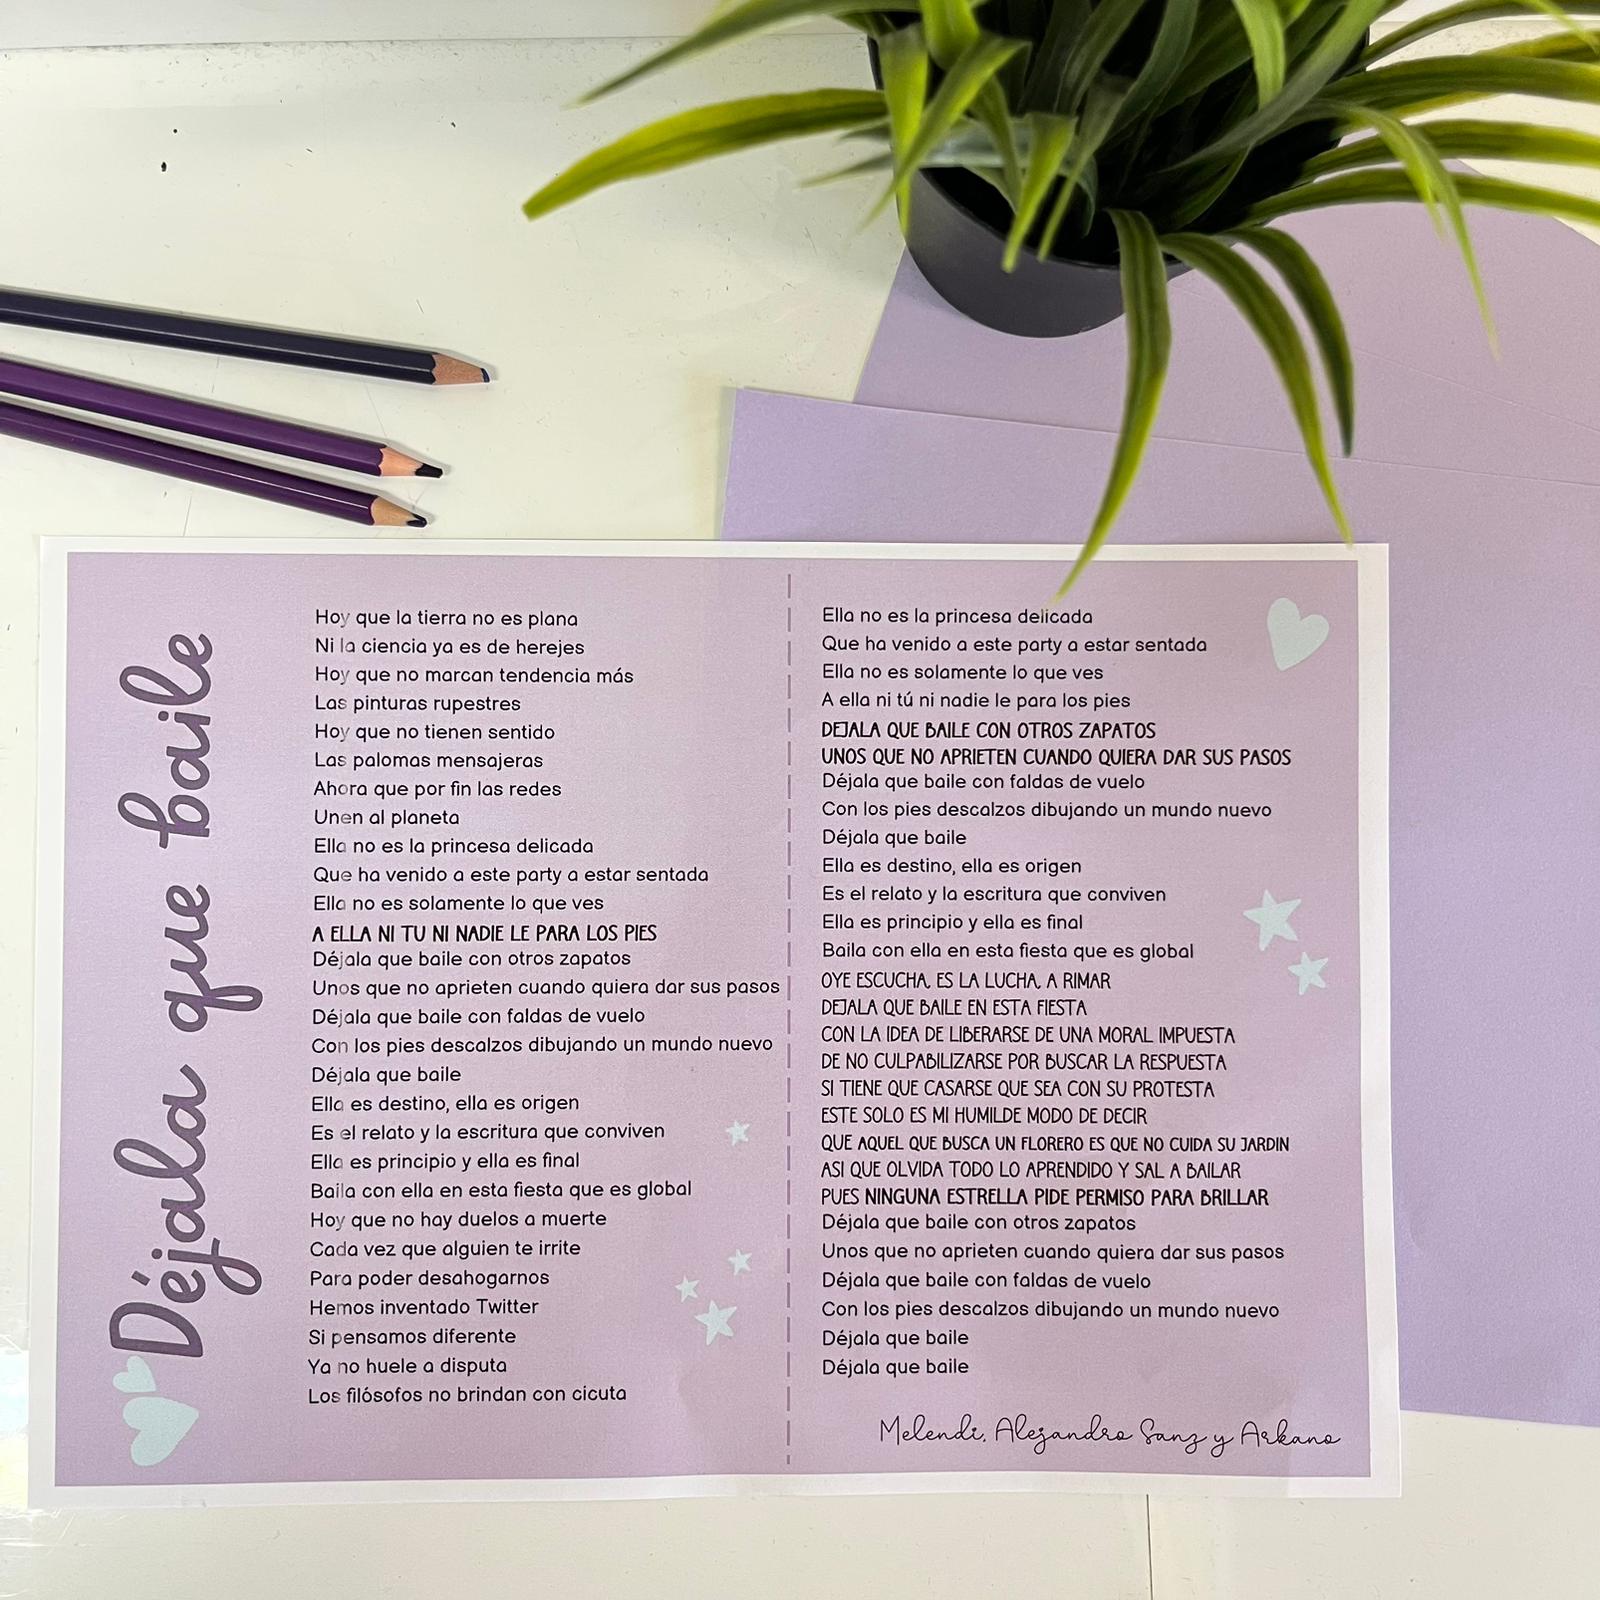 Déjala que baile
Hoy que la tierra no es plana
Ni la ciencia ya es de herejes
Hoy que no marcan tendencia más
Las pinturas rupestres
Hoy que no tienen sentido
Las palomas mensajeras
Ahora que por fin las redes
Unen al planeta
Ella no es la princesa delicada
Que ha venido a este party a estar sentada
Ella no es solamente lo que ves
A ELLA NI TU NI NADIE LE PARA LOS PIES
Déjala que baile con otros zapatos
Unos que no aprieten cuando quiera dar sus pasos
Déjala que baile con faldas de vuelo
Con los pies descalzos dibujando un mundo nuevo
Déjala que baile
Ella es destino, ella es origen
Es el relato y la escritura que conviven
Ella es principio y ella es final
Baila con ella en esta fiesta que es global
Hoy que no hay duelos a muerte
Cada vez que alguien te irrite
Para poder desahogarnos
Hemos inventado Twitter
Si pensamos diferente
Ya no huele a disputa
Los filósofos no brindan con cicuta
Ella no es la princesa delicada
Que ha venido a este party a estar sentada
Ella no es solamente lo que ves
A ella ni tú ni nadie le para los pies
DEJALA QUE BAILE CON OTROS ZAPATOS
UNOS QUE NO APRIETEN CUANDO QUIERA DAR SUS PASOS
Déjala que baile con faldas de vuelo
Con los pies descalzos dibujando un mundo nuevo
Déjala que baile
Ella es destino, ella es origen
Es el relato y la escritura que conviven
Ella es principio y ella es final
Baila con ella en esta fiesta que es global
OYE ESCUCHA, ES LA LUCHA, A RIMAR
DEJALA QUE BAILE EN ESTA FIESTA
CON LA IDEA DE LIBERARSE DE UNA MORAL IMPUESTA
DE NO CULPABILIZARSE POR BUSCAR LA RESPUESTA
SI TIENE QUE CASARSE QUE SEA CON SU PROTESTA
ESTE SOLO ES MI HUMILDE MODO DE DECIR
QUE AQUEL QUE BUSCA UN FLORERO ES QUE NO CUIDA SU JARDIN
ASI QUE OLVIDA TODO LO APRENDIDO Y SAL A BAILAR
PUES NINGUNA ESTRELLA PIDE PERMISO PARA BRILLAR
Déjala que baile con otros zapatos
Unos que no aprieten cuando quiera dar sus pasos
Déjala que baile con faldas de vuelo
Con los pies descalzos dibujando un mundo nuevo
Déjala que baile
Déjala que baile
Melendi, Alejandro Sanz y Arkano